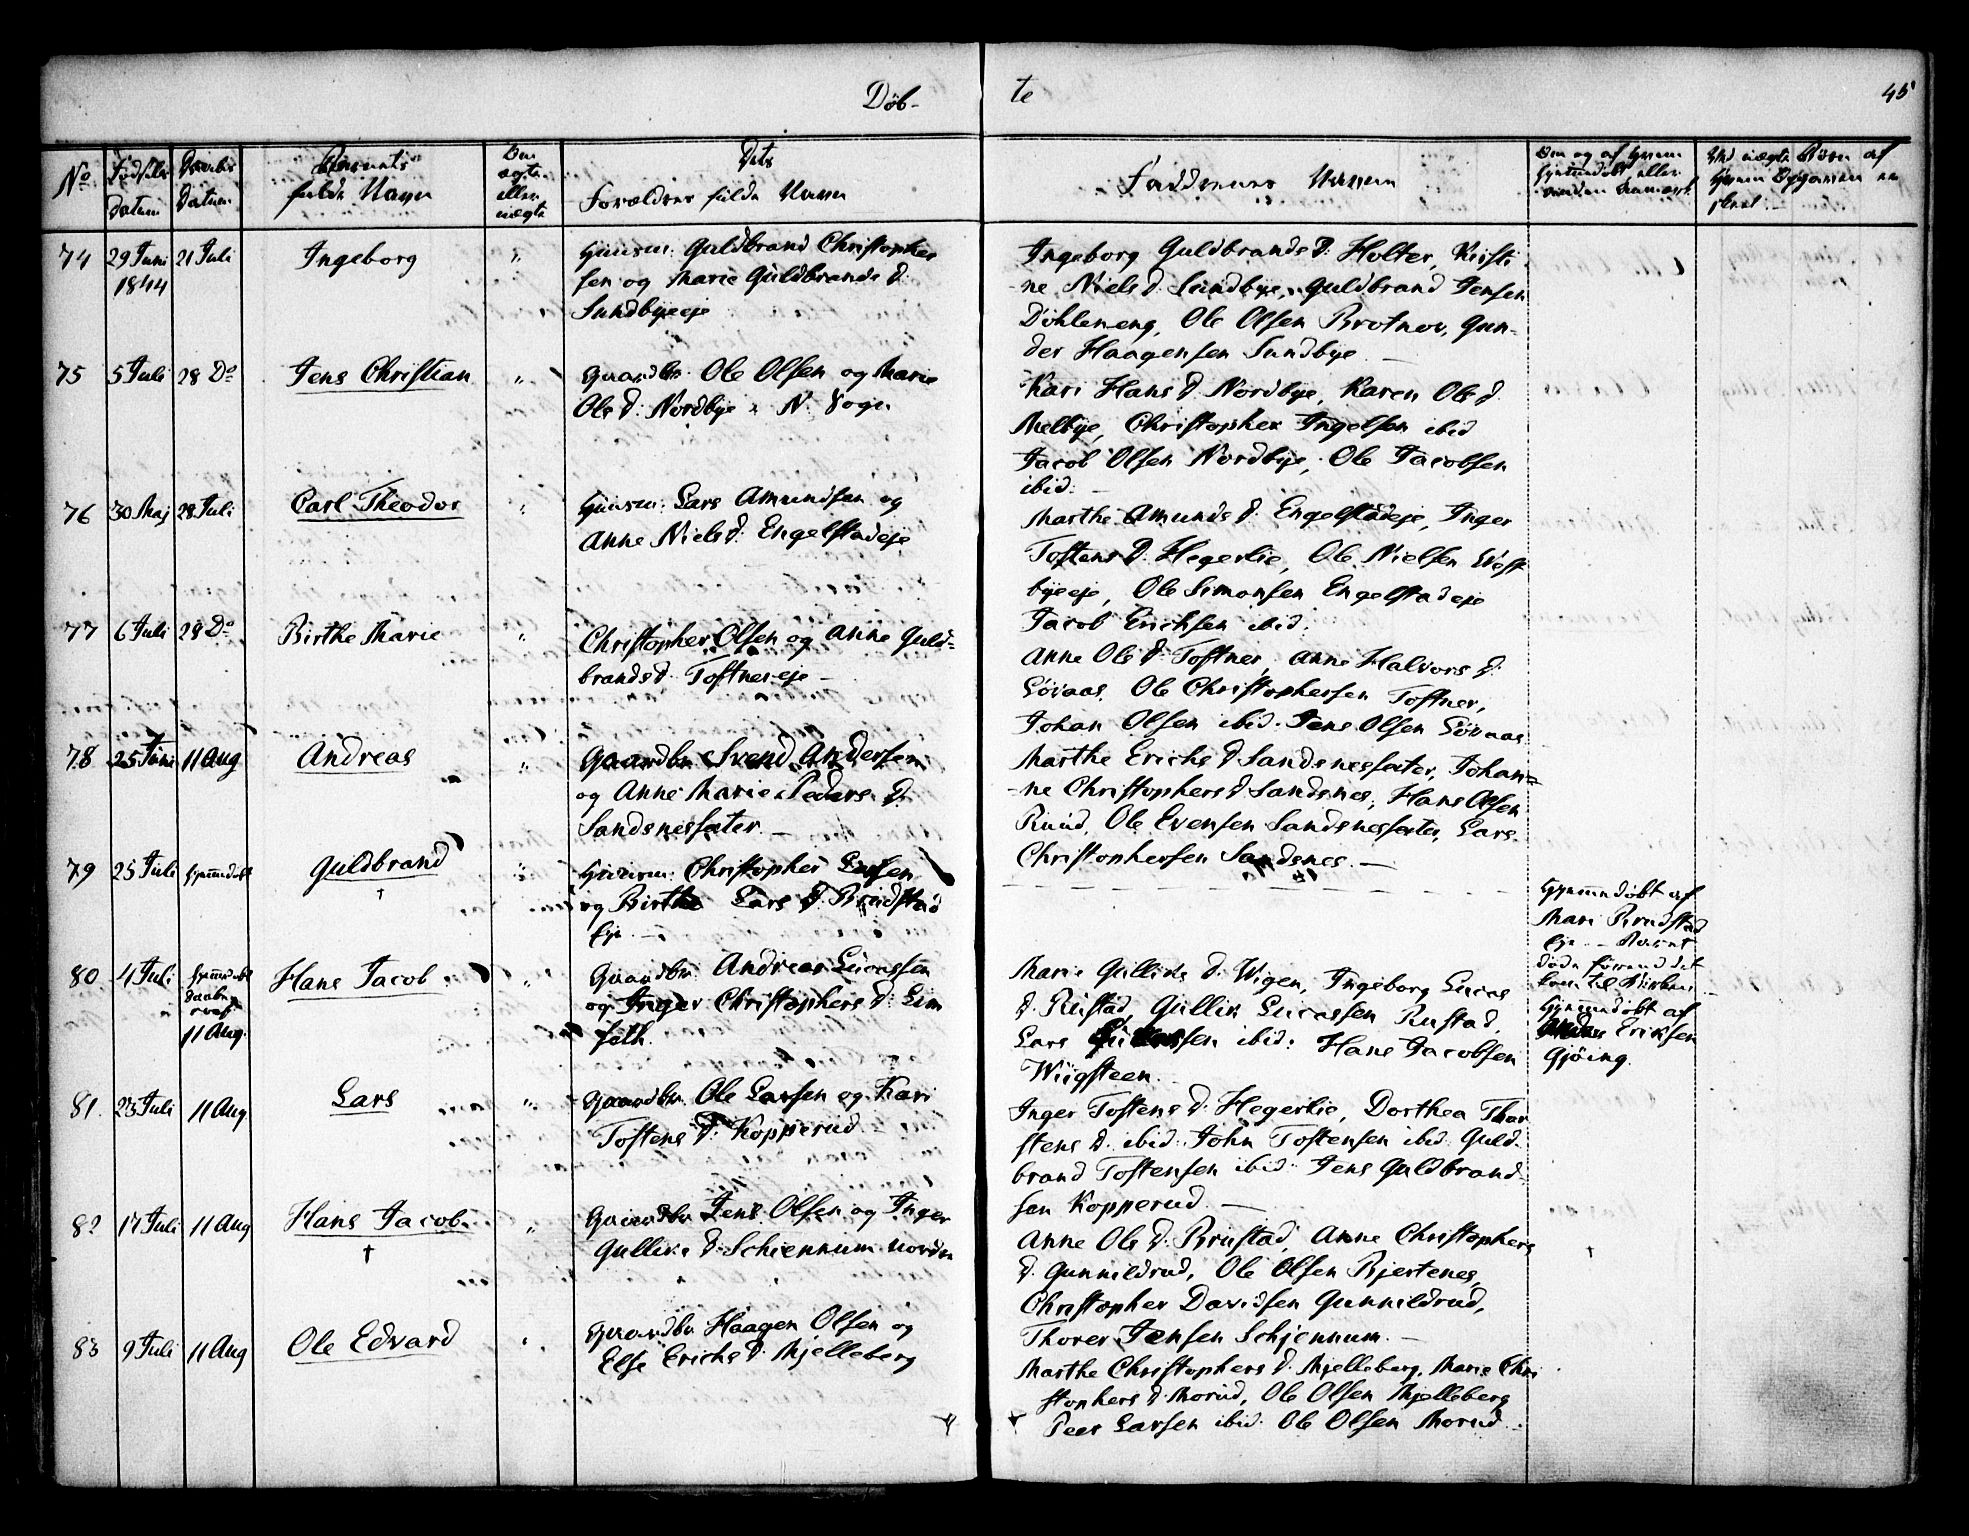 Döb- te 45
No Fødsels Datum Daabs Datum Barnets fulde Navn Om ægte eller uægte Dets Forældres fulde Navn Faddernes Navne Om og af hvem hjemmedøbt eller anden Anmærk
74 29 Juni 1844 21 Juli Ingeborg "
Huusm: Guldbrand Christopher
sen og Marie Guldbrands D.
Sundbyeeje
Ingeborg Guldbrands D: Holter, Kristi
-ne Niels D. Sundbye, Guldbrand Jensen
Döhleneng, Ole Olsen Brotnov, Gun-
der Haagensen Sundbye. —
75 5 Juli 28 Do Jens Christian "
Gaardbr. Ole Olsen og Marie
Ols D. Nordbye N. Sogn
Kari Hans D. Nordbye, Karen Ole D.
Melbye, Christopher Ingelsen ibid
Jacob Olsen Nordbye, Ole Jacobsen
ibid: —
76 30 Maj 28 Juli Carl Theodor "
Huusm: Lars Amundsen og
Anne Niels D: Engelstadeje
Marthe Amunds D. Engelstadeje, Inger
Tostens D. Hegerlie, Ole Nielsen Vest
byeeje, Ole Simonsen Engelstadeje
Jacob Erichsen ibid:
77 6 Juli 28 Do Birthe Marie "
Christopher Olsen og Anne Guld-
brands D. Toftnereje —
Anne Ole D. Toftner, Anne Halvors D.
Lövaas, Ole Christophersen Toftner,
Johan Olsen ibid. Jens Olsen Lövaas
78 25 Juni 11 Aug Andreas "
Gaardbr Svend Andersen
og Anne Marie Peders D.
Sandsnessæter —
Marthe Erichs D Sandsnessæter, Johan-
-ne Christophers D Sandsnes, Hans Olsen
Ruud, Ole Evensen Sandsnessæter, Lars
Christophersen Sandsnes. —
79 25 Juli hjemmdøbt Guldbrand † "
Huusm: Christopher Larsen
og Birthe Lars D. Brudstad
Eje. —
Hjemmdøbt af
Mari Brudstad
Eje. — Barnet
døde førend det
kom til Kirken
80 4 Juli hjemmdøbt 11 Aug. Hans Jacob "
Gaardbr. Andreas Lucassen
og Inger Christophers D: Lim
seth.
Marie Gulliks D. Wigen, Ingeborg Lucas
D. Rustad, Gullik Lucassen Rustad,
Lars Gulliksen ibid: Hans Jacobsen
Wiigsteen.
Hjemmdøbt af
Eriksen
Gjøing.
81. 23 Juli 11 Aug Lars "
Gaardbr. Ole Larsen og Kari
Tostens D: Kopperud
Inger Tostens D: Hegerlie, Dorthea Thor
stens D. ibid: John Tostensen ibid Guld-
brand Tostensen ibid: Jens Guldbrand-
sen Kopperud. —
82 17 Juli 11 Aug Hans Jacob. † "
Gaardbr Jens Olsen og Inger
Gulliks D: Schiennum nordre
Anne Ole D. Brustad, Anne Christophers
D. Gunnildrud, Ole Olsen Bjertenes,
Christopher Davidsen Gunnildrud,
Thorer Jensen Schjennum. —
83 9 Juli 11 Aug Ole Edvard "
Gaardbr Haagen Olsen og
Else Erichs D: Mjelleberg
Marthe Christophers D. Mjelleberg, Marie Chri
stophers D. Morud, Ole Olsen Mjelleberg
Peer Larsen ibid. Ole Olsen Morud.